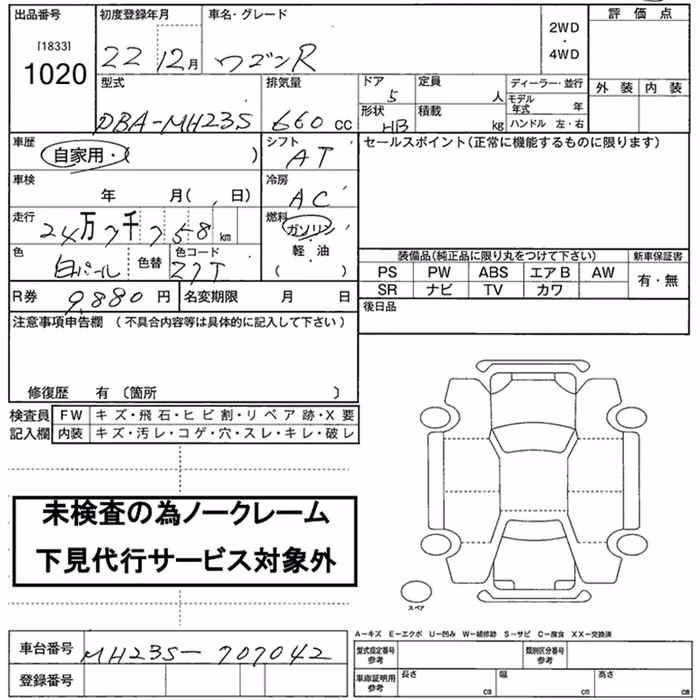 出品番号 初度登録年月 車名・グレード 評価点
[1833]
1020
22 12月 ワゴンR
2WD
・
4WD
型式 排気量 ドア 定員 ディーラー・並行 外装 内装
DBA-MH23S 660 cc 5 人 モデル年式 年
形状 積載 ハンドル 左・右
HB kg
車歴 シフト セールスポイント(正常に機能するものに限ります)
自家用・( ) AT
車検 冷房
年 月( 日) AC
走行 燃料
24万7千758km ガソリン
軽・油
( )
色 白パール 色替 色コード Z7T
装備品(純正品に限り丸をつけて下さい) 新車保証書
PS PW ABS エアB AW 有・無
SR ナビ TV カワ
R券 9,880円 名変期限 月 日
後日品
注意事項申告欄 (不具合内容等は具体的に記入して下さい)
修復歴 有 〔箇所 〕
検査員 FW キズ・飛石・ヒビ割・リペア跡・X要
記入欄 内装 キズ・汚レ・コゲ・穴・スレ・キレ・破レ
未検査の為ノークレーム
下見代行サービス対象外
スペア
A-キズ E-エクボ U-凹み W-補修跡 S-サビ C-腐食 XX-交換済
車台番号 MH23S-707042
登録番号
型式指定番号 参考 類別区分番号 参考
車庫証明用 参考 長さ cm 幅 cm 高さ cm